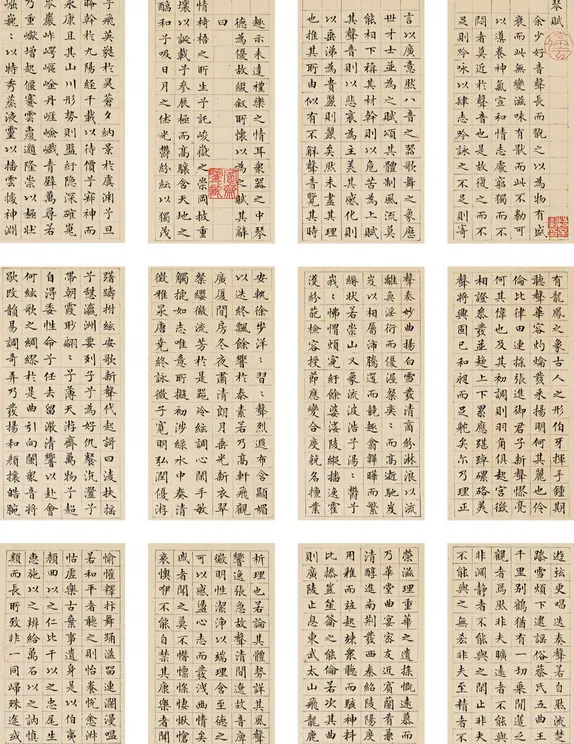 琴賦
余少好音聲長而翫之以為物有盛
衰而此無變滋味有猒而此不勌可
以導養神氣宣和情志處窮獨而不
悶者莫近於聲音也是故復之而不
足則吟咏以肆志吟詠之不足則寄
言以廣意然八音之器歌舞之象歷
世才士並為之賦頌其體制風流莫
能相下稱其材幹則以危苦為上賦
其聲音則以悲哀為主美其感化則
以垂涕為貴麗則麗矣然未盡其理
也推其所由似有不解聲音覽其時
趣示未達禮樂之情耳衆器之中琴
德為優故綴叙所懷以為之賦其辭
曰
惟椅梧之所生兮託峻嶽之崇岡披重
壤以誕載兮參辰極而高驤含天地之
醇和兮吸日月之休光鬱紛紜以獨茂
兮飛英蕤於昊蒼夕納景於虞淵兮旦
晞幹於九陽經千載以待價兮寂神而
永康且其山川形勢則盤紆隱深確嵬
岑嵓岞崿嶇崟丹崖嶮巇青壁萬尋若
乃重巘增起偃蹇雲覆邈隆崇以極壯
崛巍巍以特秀蒸液靈以播雲㦈神淵
有龍鳳之象古人之形伯牙揮手鍾期
聽聲華容灼爚發采揚明何其麗也伶
倫比律田連操張進御君子新聲憀亮
何其偉也及其初調則羽角俱起宮徵
相證參發並趣上下累應踸踔磥硌美
聲將興固已和昶而足躭矣尓乃理正
聲奏妙曲揚白雪發清角紛淋浪以流
離奐淫衍而優渥粲奕奕而高逝馳岌
岌以相属沛騰遌而競趣翕韡曄而繁
縟狀若崇山又象流波浩兮湯湯鬱兮
峩峩怫愲煩寃紆餘婆娑陵縱播逸霍
濩紛葩檢容授節應變合度兢名擅業
安軌徐步洋洋習習聲烈遐布含顯媚
以送終飄餘響於泰素若乃高軒飛觀
廣厦閒房冬夜肅清朗月垂光新衣翠
粲纓徽流芳於是器冷絃調心閑手敏
觸㨖如志唯意所擬初涉淥水中奏清
徵雅昶唐堯終詠微子寬明弘潤優游
躇跱拊絃安歌新聲代起謌曰淩扶摇
兮憩瀛洲要列子兮為好仇餐沆瀣兮
帶朝霞眇翩翩兮薄天游齊萬物兮超
自得委性命兮任去留激清響以赴會
何絃歌之綢繆於是曲引向闌衆音將
歇改韻易調奇弄乃發揚和顔攘皓腕
遊弦更唱迭奏聲若自然流楚
躁雪煩下逮謡俗蔡氏五曲王
千里别鶴猶有一切乘間簉乏
觀者焉然非夫曠遠者不能與
非淵靜者不能與之閒止非夫
不能與之無吝非夫至精者不
榮滋理重華之遺操慨遠慕而
堂曲宴密友近
清醇進南荆發西秦紹陵陽度
用雜而並起竦衆聽而駭神料
比操豈笙籥之能倫若次其曲
則廣陵止息東武太山飛龍鹿
析理也若論其體勢詳其風聲
響逸張急故聲清閒遼故音庳
徽鳴性潔靜以端理含至德之
可以感盪心志而發洩幽情矣
戚者聞之莫不憯懍慘悽愀愴
哀懊咿不能自禁其康樂者聞
愉懽釋抃舞踊溢留連瀾漫嗢
若和平者聽之則怡養悅愈淑
恬虛樂古棄事遺身是以伯夷
顏回以之仁比干以之忠尾生
惠施以之辯給萬石以之訥慎
類而長所致非一同歸殊途或